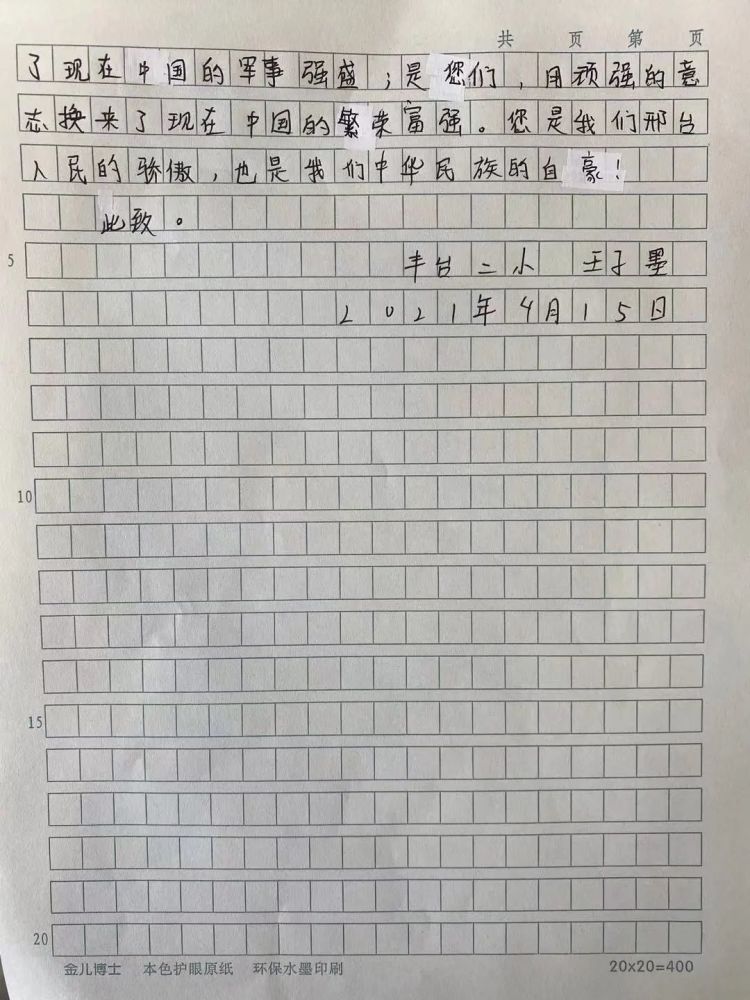 共 页 第 页
了现在中国的军事强盛；是您们，用顽强的意
志换来了现在中国的繁荣富强。您是我们邢台
人民的骄傲，也是我们中华民族的自豪！
此致。
5
丰台二小 王子墨
2021年4月15日
10
15
20
金儿博士 本色护眼原纸 环保水墨印刷 20x20=400